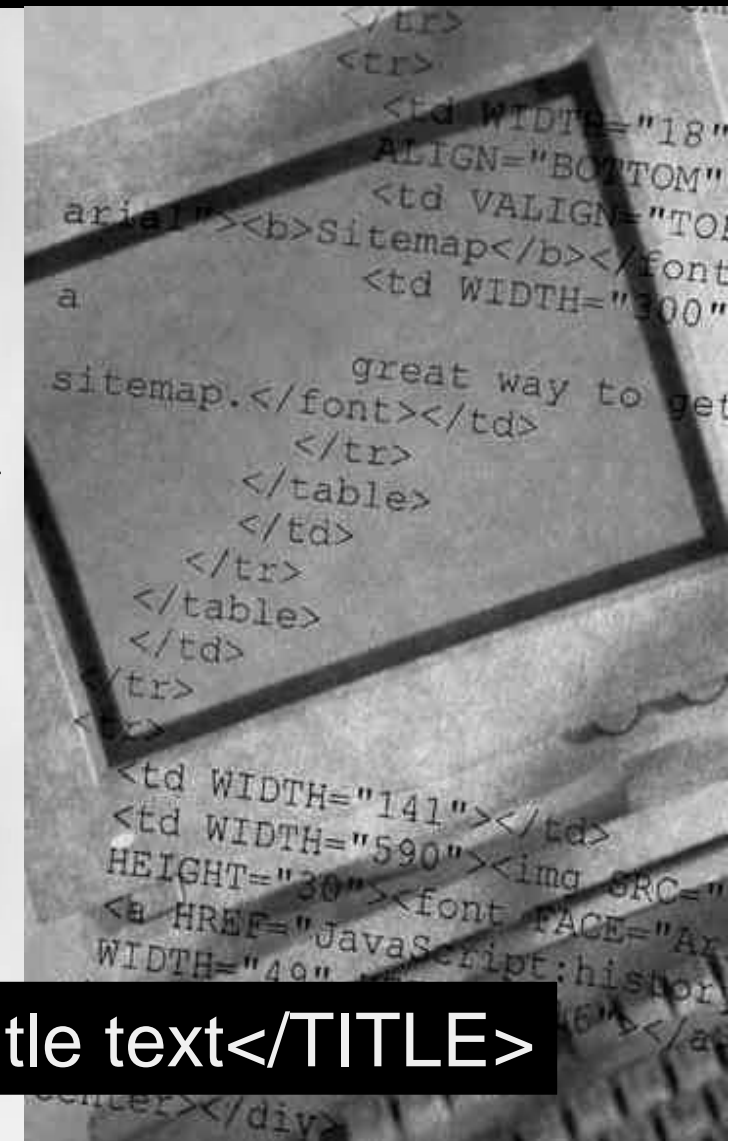 </tr>
<tr>
<td WIDTH="18"
ALIGN="BOTTOM"
<td VALIGN="TOP
arial"><b>Sitemap</b></font
<td WIDTH="300"
a
great way to get
sitemap.</font></td>
</tr>
</table>
</td>
</tr>
</table>
</td>
</tr>
<tr>
<td WIDTH="141"></td>
<td WIDTH="590"><img SRC="
HEIGHT="30"><font FACE="Ar
<a HREF="JavaScript:history
WIDTH="49"
46"></a
tle text</TITLE>
center></div>